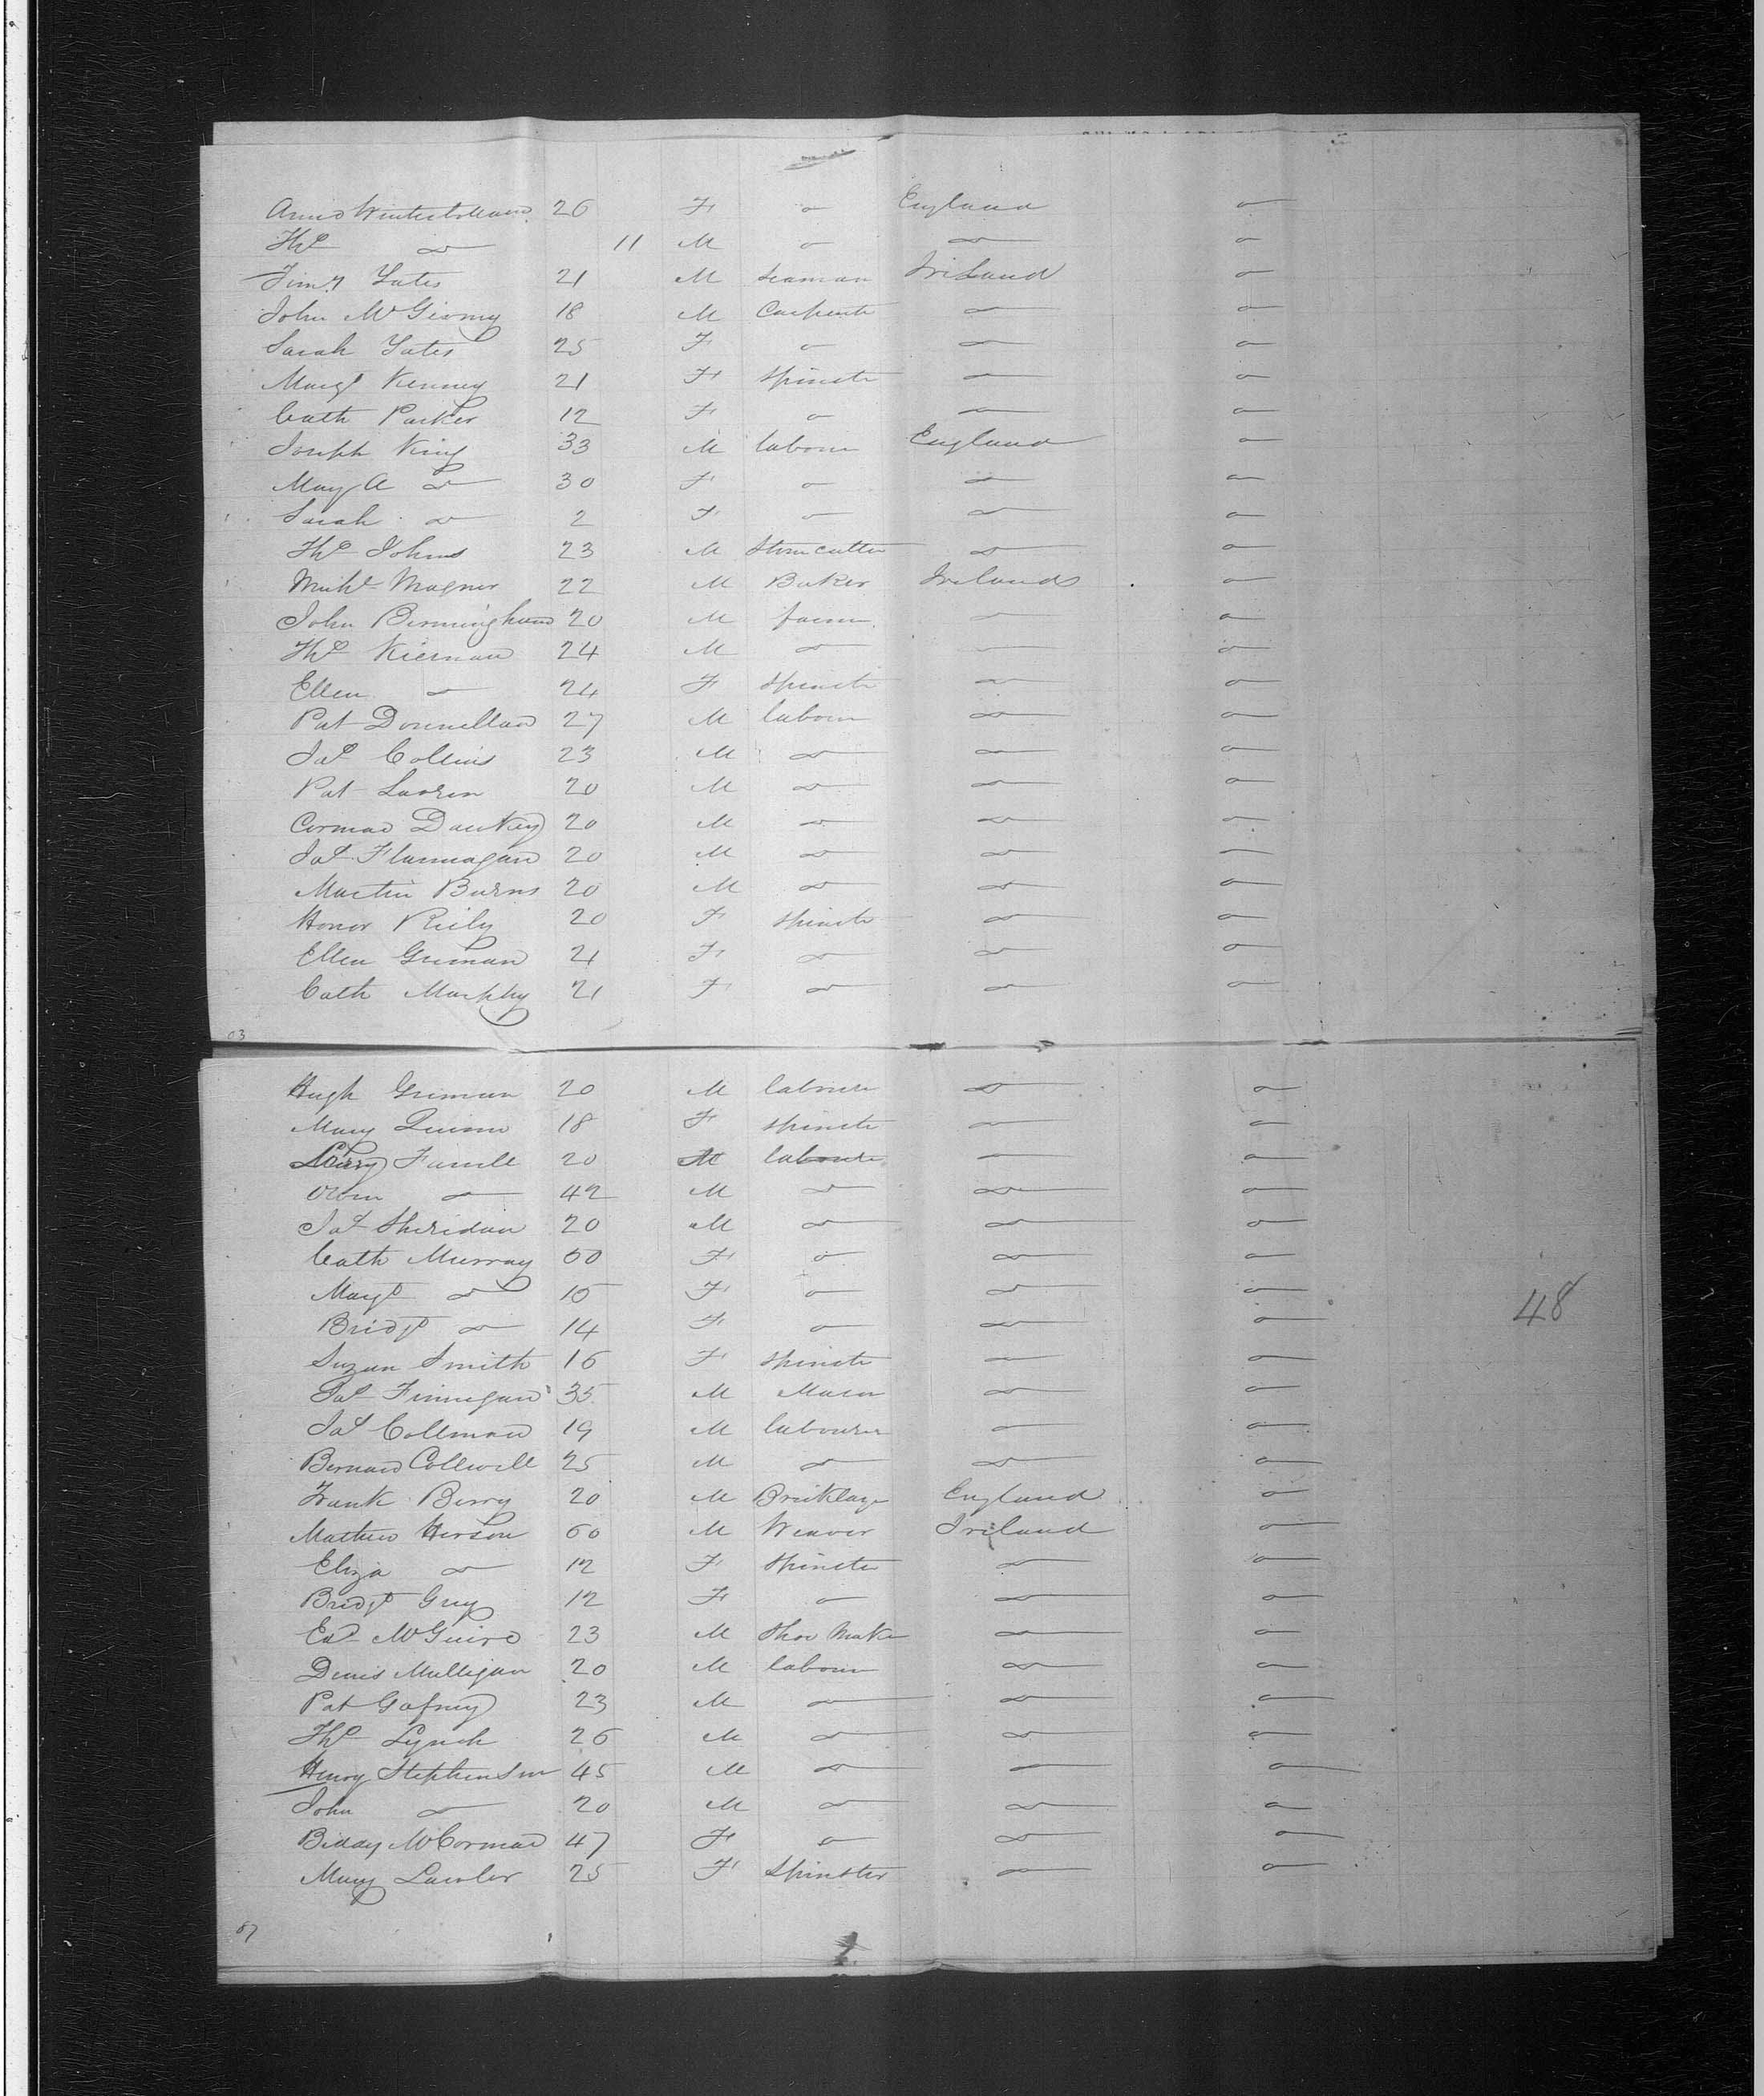 Annie Winterbottom 26 F " England "
Thos do 11 M " do "
Timy Yates 21 M Seaman Ireland "
John McGivney 18 M Carpente " "
Sarah Yates 25 F " " "
Margt Kenney 21 F Spinste " "
Cath Parker 12 F " " "
Joseph King 33 M labour England "
Mary A do 30 F " do "
Sarah do 2 F " do "
Thos Johns 23 M Stone cutter do "
Michl Magner 22 M Baker Ireland "
John Birmingham 20 M farm "
Thos Kiernan 24 M do "
Ellen do 24 F Spinste do "
Pat Donnellan 27 M labour do "
Jas Collins 23 M do do "
Pat 20 M do do "
Cormac 20 M do do "
Jas Flannagan 20 M do do "
Martin Burns 20 M do do "
Honor Reily 20 F Spinste do "
Ellen Griman 21 F do do "
Cath Murphy 21 F do do "
03
Hugh Griman 20 M labourer do "
Mary Quinn 18 F Spinste do "
20 M laboure do "
Owen do 42 M do do "
Jas Sheridan 20 M do do "
Cath Murray 50 F " do "
Margt do 15 F " do "
48
Bridgt do 14 F " do "
Suzan Smith 16 F Spinste do "
Pat Finnegan 35 M Mason do "
Jas Collman 19 M labourer do "
Bernard Collwell 25 M do do "
Frank Berry 20 M Bricklaye England "
Mathew Herson 60 M Weaver Ireland "
Eliza do 12 F Spinster do "
Bridgt Guy 12 F " do "
Ed McGuire 23 M Shoe Make do "
Denis Mulligan 20 M labour do "
Pat Gafney 23 M do do "
Thos Lynch 26 M do do "
Henry Stephenson 45 M do do "
John do 20 M do do "
Bidday McCormac 47 F " do "
Mary Lawler 25 F Spinster do "
87